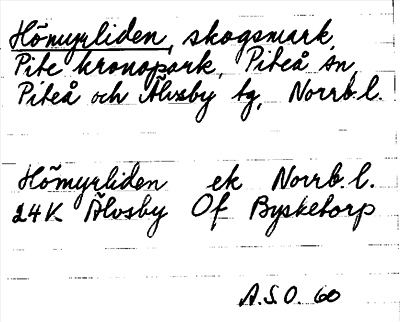 Hömyrliden, skogsmark,
Pite kronopark, Piteå sn,
Piteå och Älvsby tg, Norrb.l.
Hömyrliden ek Norrb.l.
24K Älvsby Of Bysketorp
A.S.O. 60